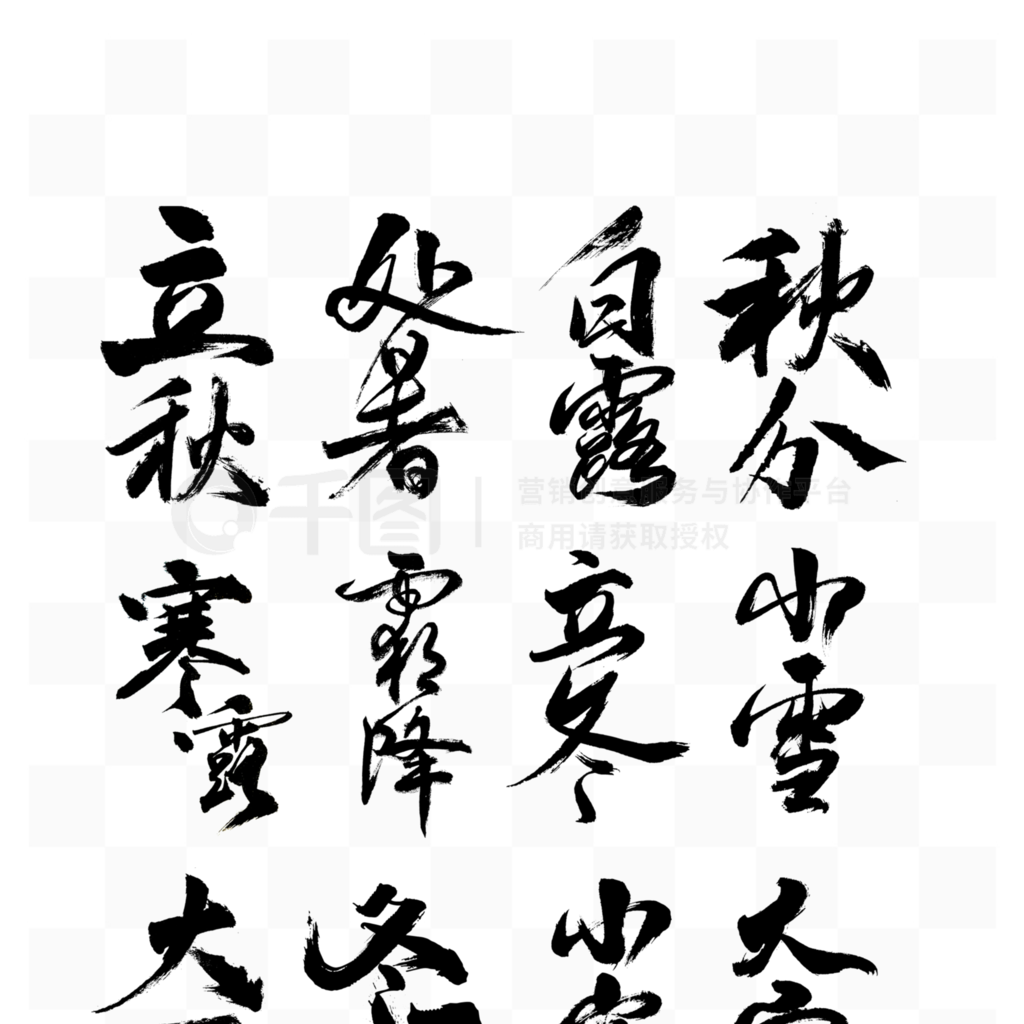 立秋
处暑
白露
秋分
千图
营销创意服务与协作平台
商用请获取授权
寒露
霜降
立冬
小雪
大
冬
小
大